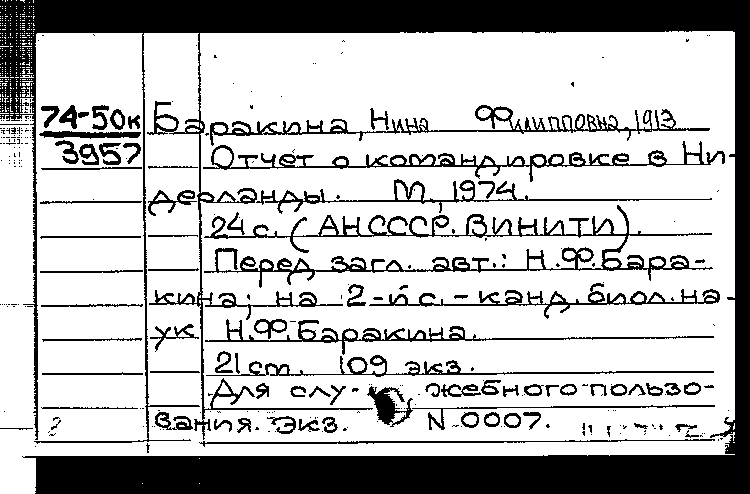 74-50к Баракина, Нина Филипповна, 1913
3957 Отчет о командировке в Ни-
дерланды. М., 1974.
24 с. (АН СССР. ВИНИТИ).
Перед загл. авт.: Н.Ф.Бара-
кина; на 2-й с. - канд. биол. на-
ук Н.Ф.Баракина.
21 ст. 109 экз.
Для слу- жебного пользо-
вания. Экз. N 0007.